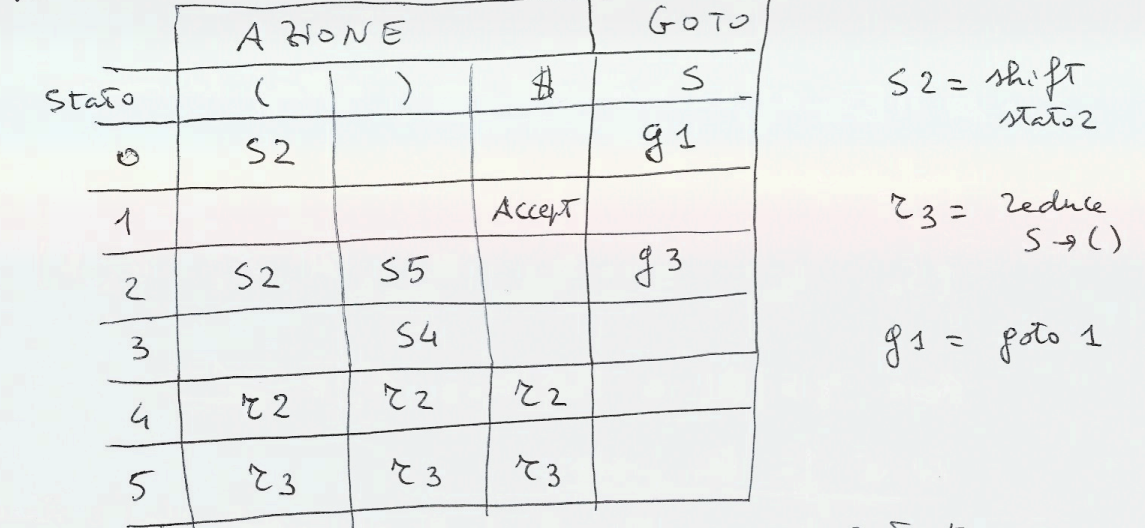 AZIONE GOTO
Stato ( ) $ S
0 S2 g1
1 Accept
2 S2 S5 g3
3 S4
4 r2 r2 r2
5 r3 r3 r3
S2 = shift
stato 2
r3 = reduce
S → ( )
g1 = goto 1